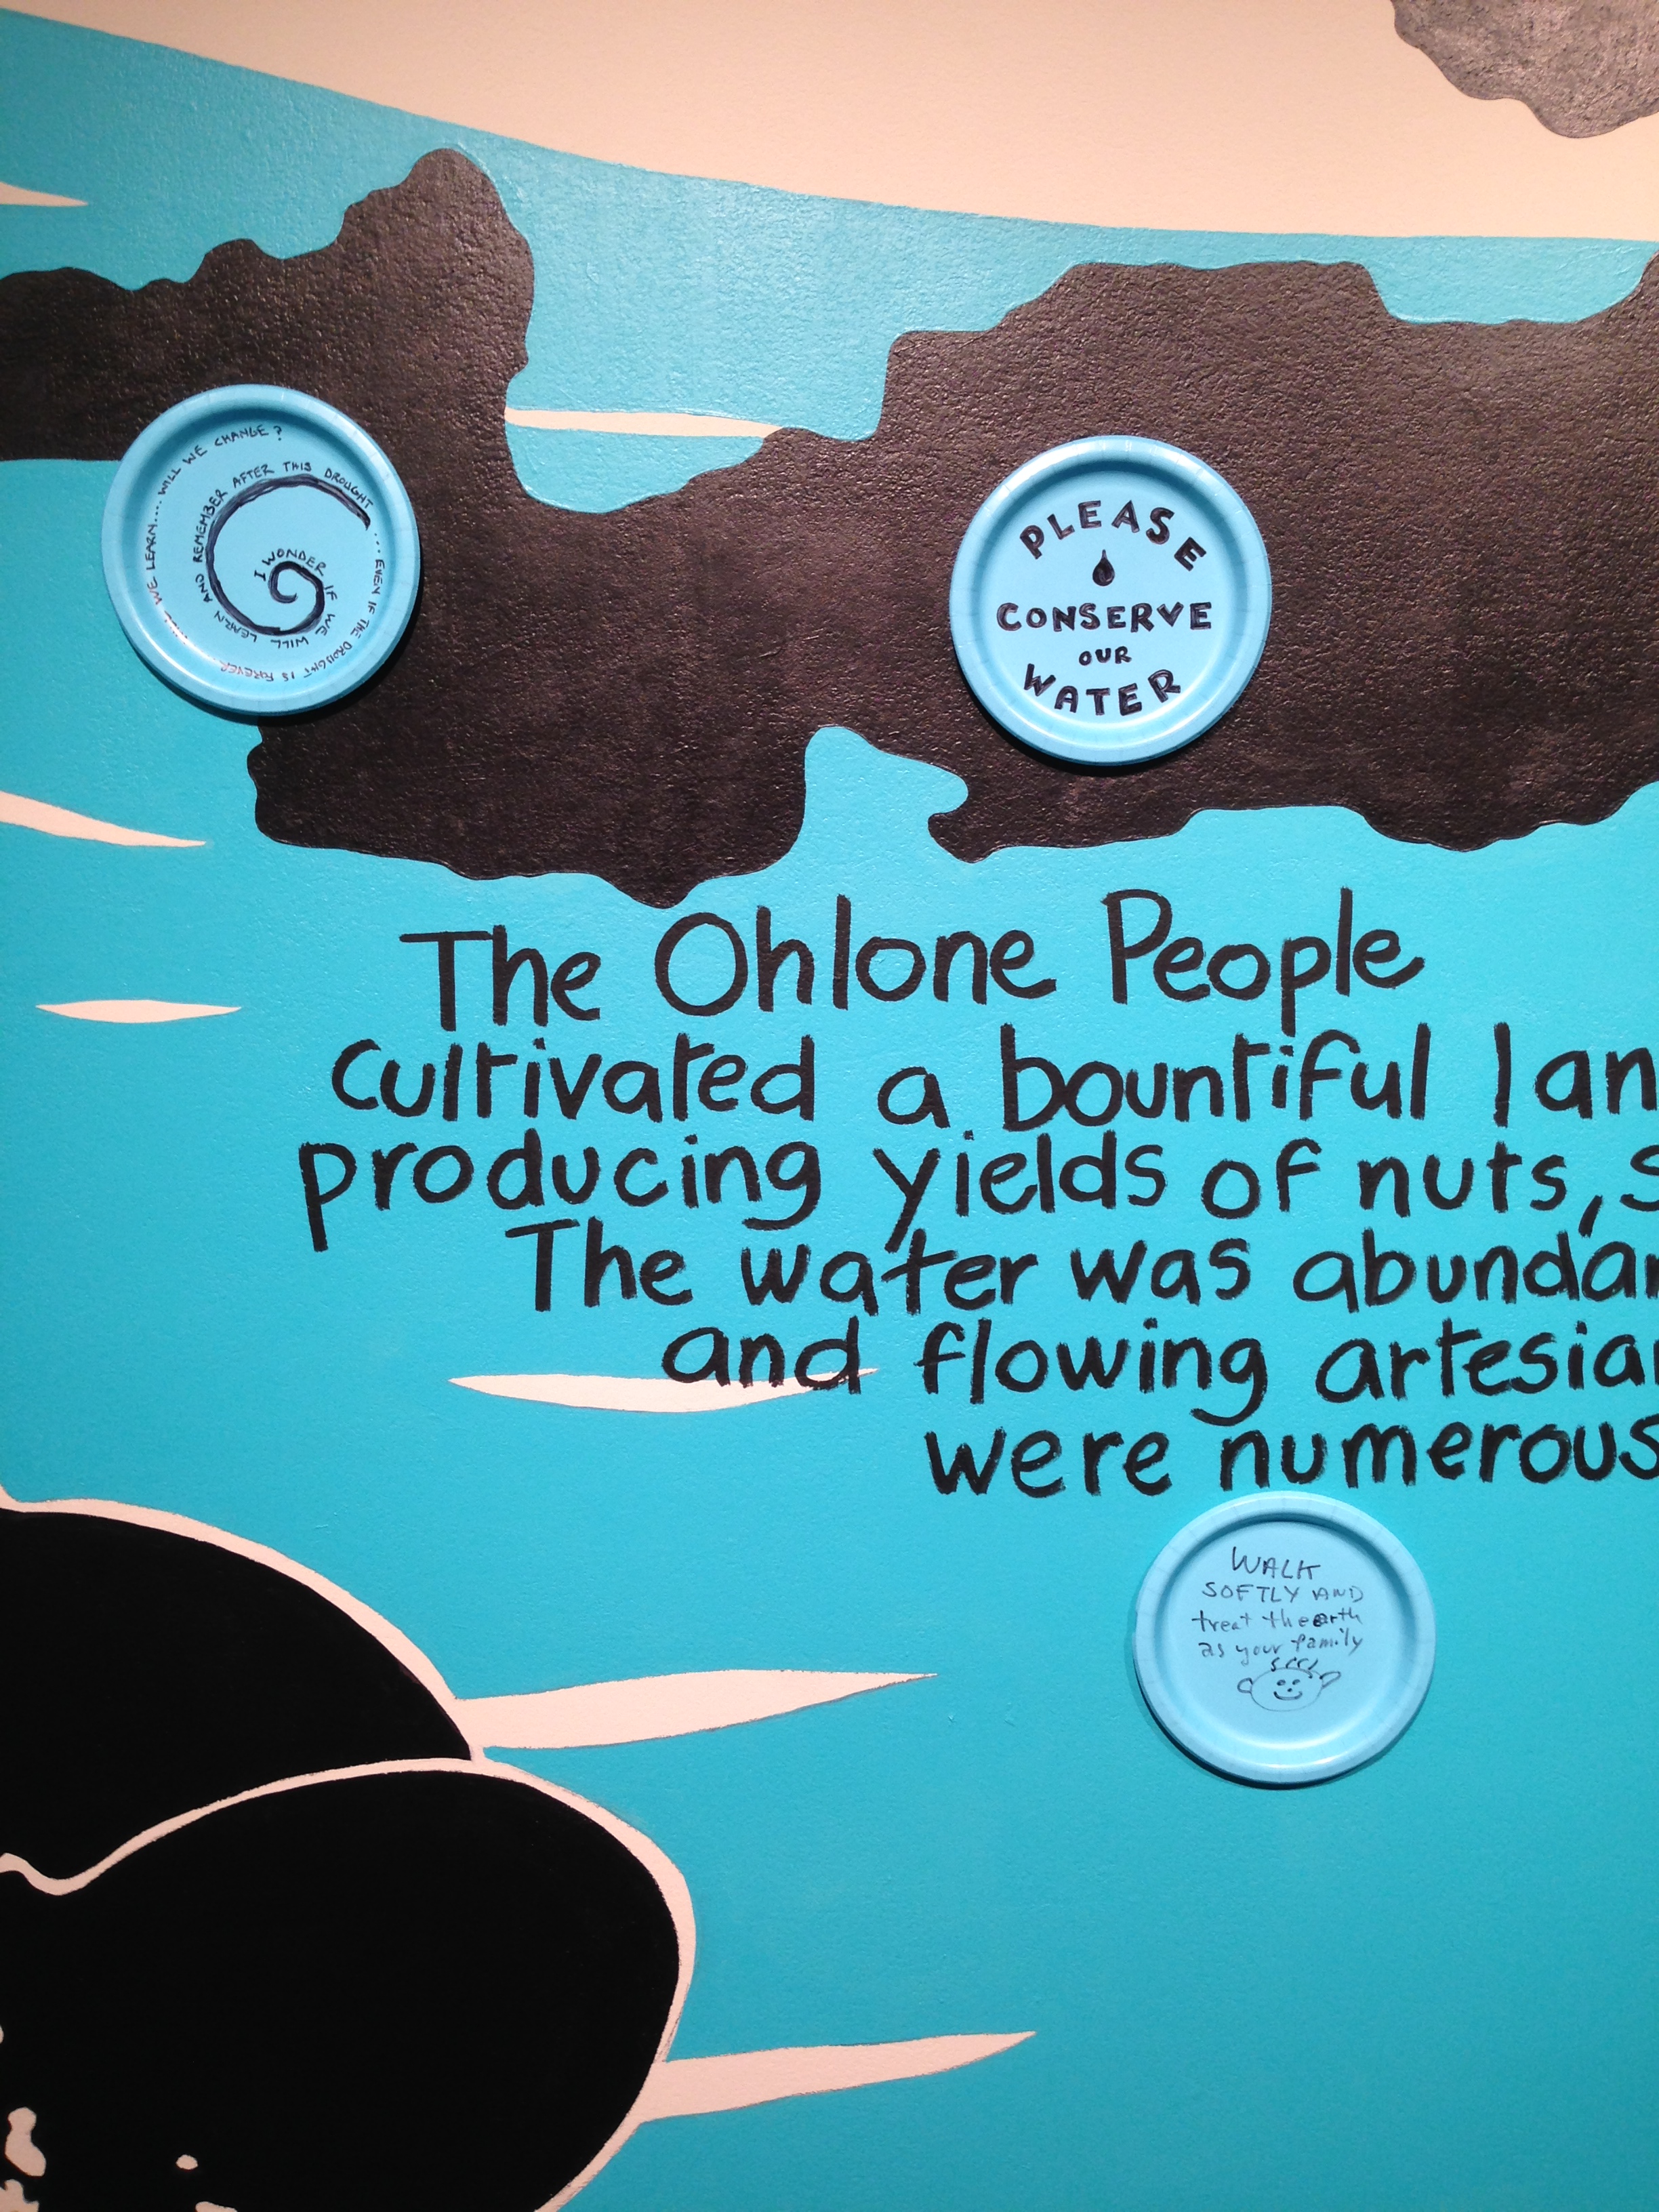 I WONDER IF WE WILL LEARN AND REMEMBER AFTER THIS DROUGHT ... EVEN IF THE DROUGHT IS FOREVER
WE LEARN.... WILL WE CHANGE?
PLEASE
CONSERVE
OUR
WATER
The Ohlone People
cultivated a bountiful lan
producing yields of nuts, s
The water was abundan
and flowing artesian
were numerous
WALK
SOFTLY AND
treat the earth
as your family